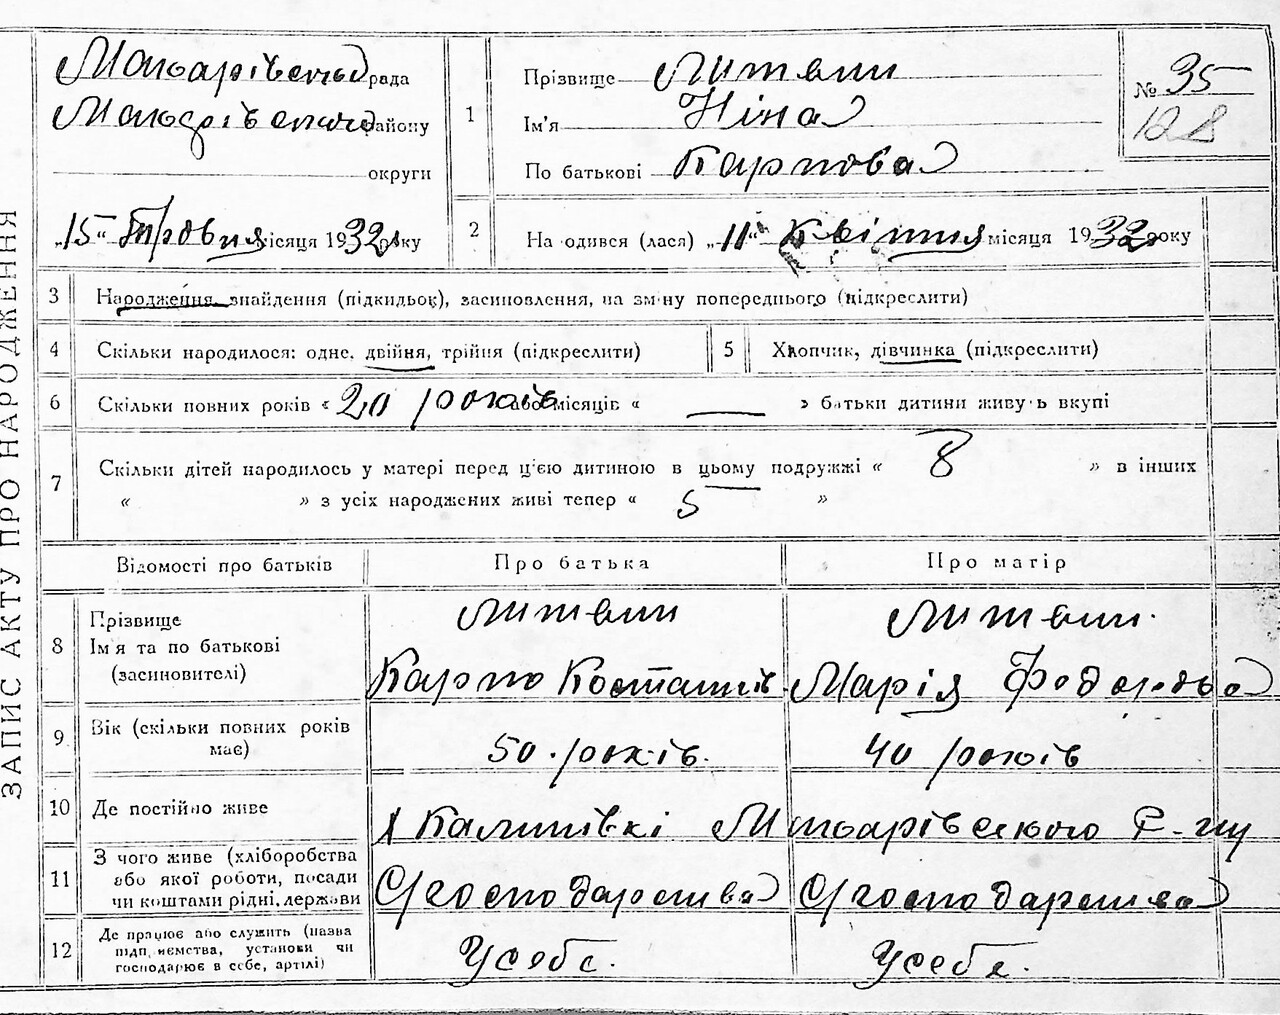 ЗАПИС АКТУ ПРО НАРОДЖЕННЯ
Макарівська рада
Макарівського району
округи
„15“ Травня місяця 1932 року
1
Прізвище Литвин
Ім'я Ніна
По батькові Карпова
№ 35
128
2
На одився (лася) „11“ Квітня місяця 1932 року
3 Народження, знайдення (підкидьок), засиновлення, на зміну попереднього (підкреслити)
4 Скільки народилося: одне, двійня, трійня (підкреслити)
5 Хлопчик, дівчинка (підкреслити)
6 Скільки повних років « 20 років або місяців « — » батьки дитини живуть вкупі
7 Скільки дітей народилось у матері перед ц'єю дитиною в цьому подружжі « 8 » в інших
« » з усіх народжених живі тепер « 5 »
Відомості про батьків Про батька Про матір
8 Прізвище
Ім'я та по батькові
(засиновителі)
Литвин Литвин.
Карпо Марія Федорова
9 Вік (скільки повних років
має)
50. років. 40 років
10 Де постійно живе
Калинівкі Макарівського Р-ну
11 З чого живе (хліборобства
або якої роботи, посади
чи коштами рідні, держави
С/господарства С/господарства
12 Де працює або служить (назва
підприємства, установи чи
господарює в себе, артілі)
У себе. У себе.